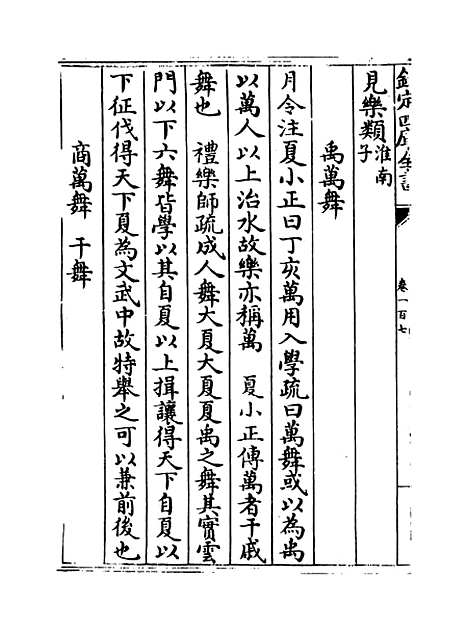 欽定四庫全書
卷一百七
見樂類淮南子
禹萬舞
月令注夏小正曰丁亥萬用入學疏曰萬舞或以為禹
以萬人以上治水故樂亦稱萬　夏小正傳萬者干戚
舞也　禮樂師疏成人舞大夏大夏夏禹之舞其實雲
門以下六舞皆學以其自夏以上揖讓得天下自夏以
下征伐得天下夏為文武中故特舉之可以兼前後也
商萬舞　干舞